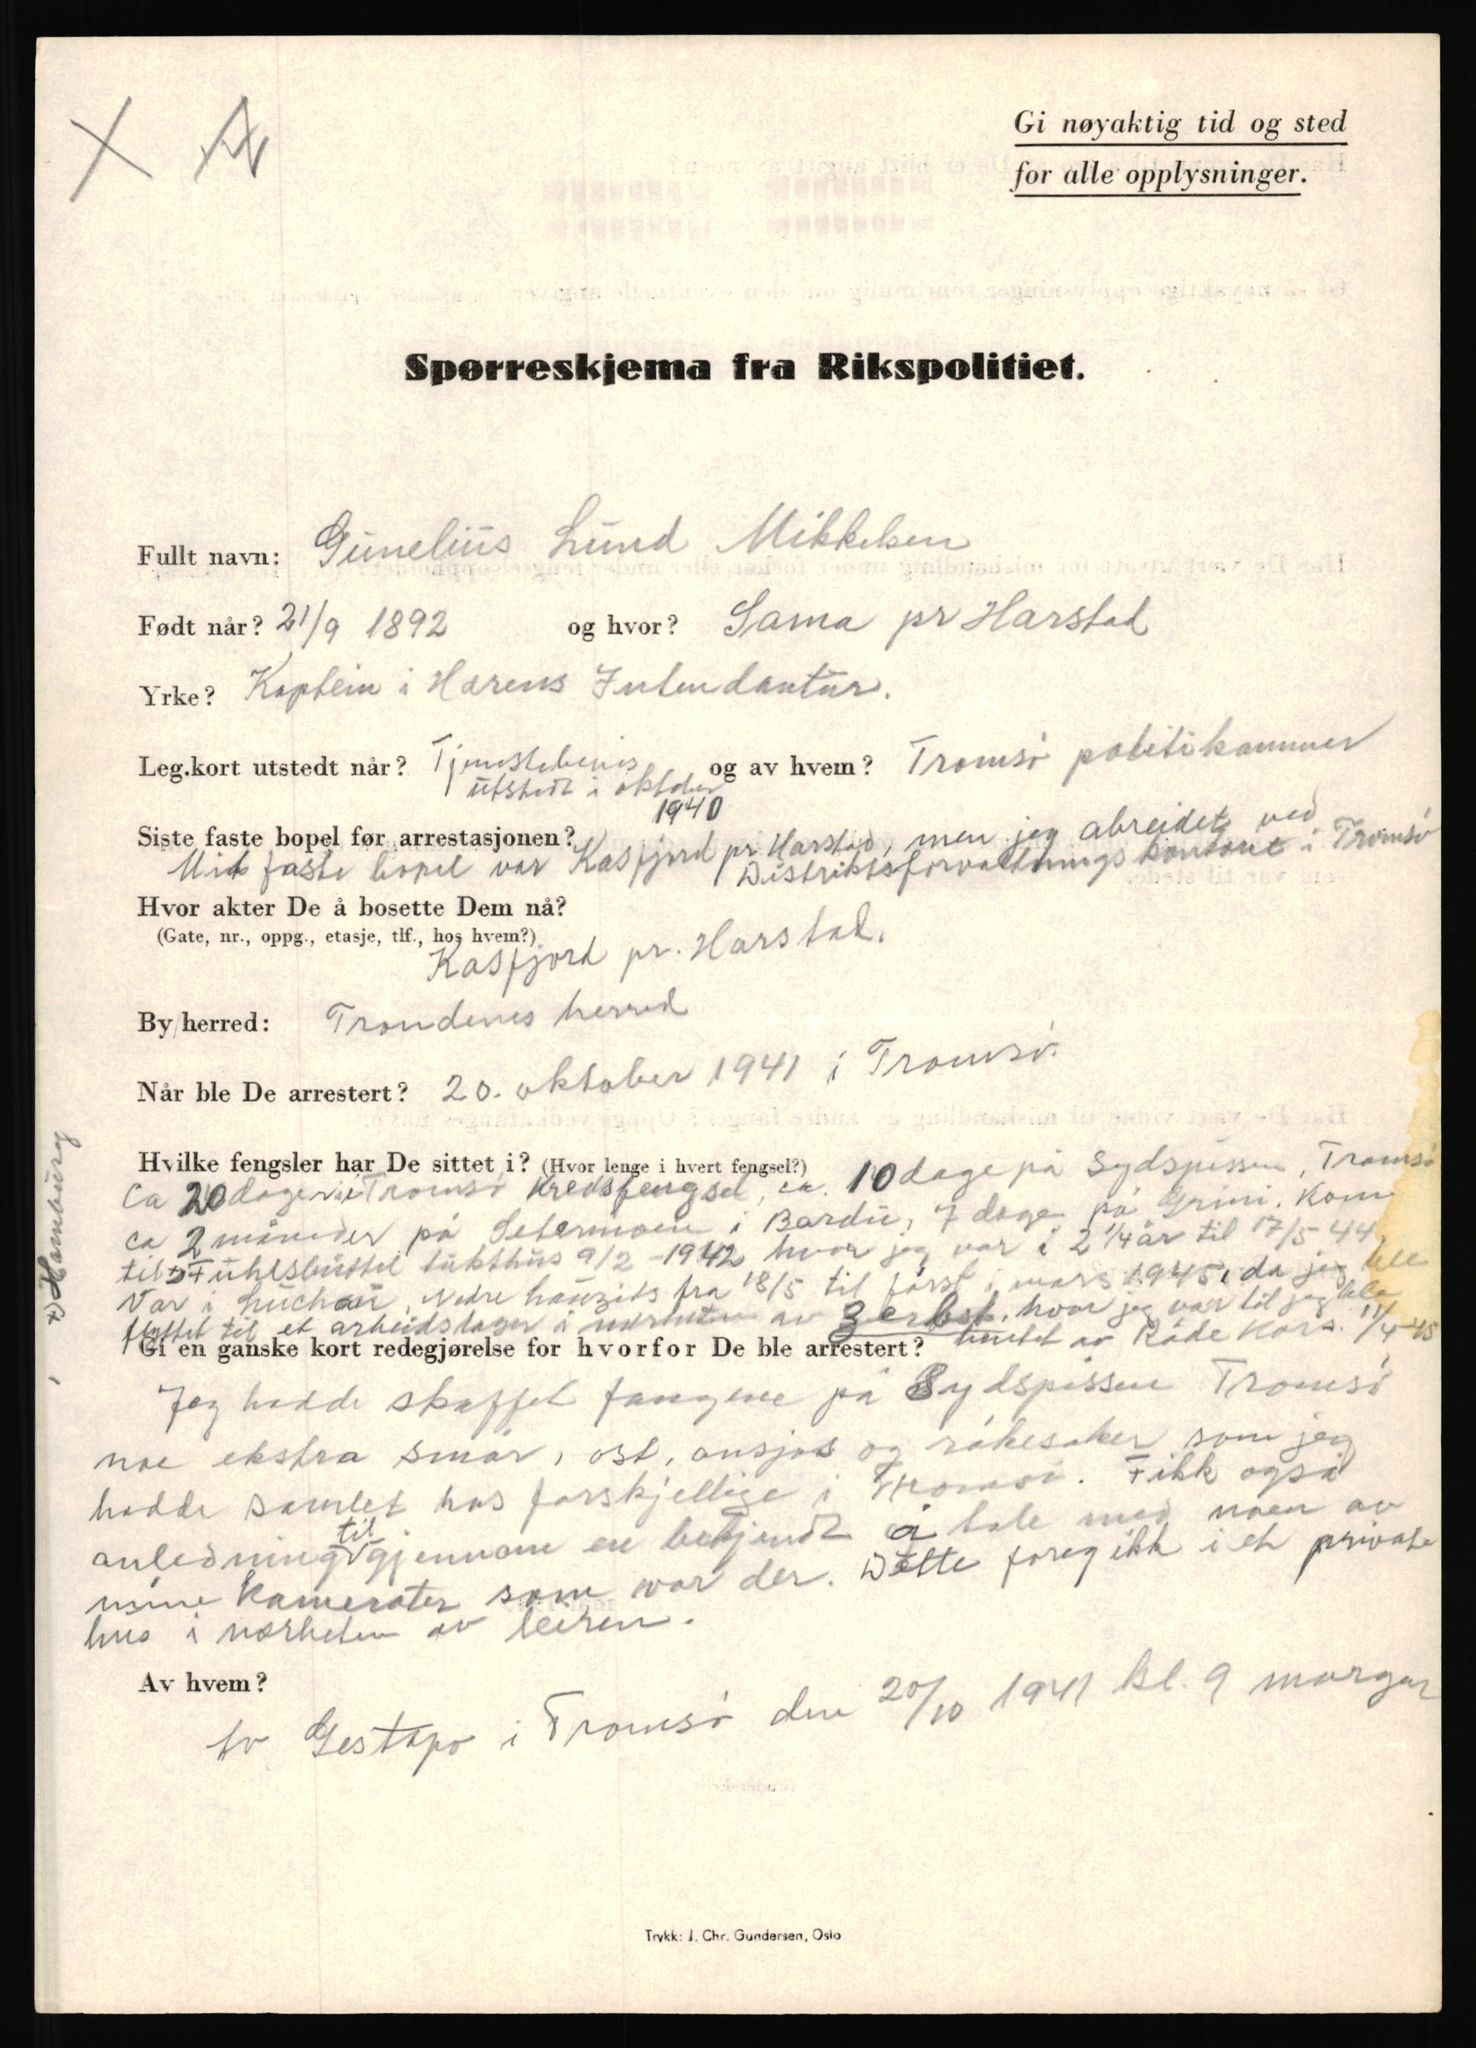 Gi nøyaktig tid og sted
for alle opplysninger.
Spørreskjema fra Rikspolitiet.
Fullt navn: Gunelius Lund Mikkelsen
Født når? 21/9 1892 og hvor? Sama pr Harstad
Yrke? Kaptein i Hærens Intendantur.
Leg.kort utstedt når? Tjenstebevis og av hvem? Tromsö politikammer
utstedt i oktober
1940
Siste faste bopel før arrestasjonen?
Mit faste bopel var Kasfjord pr. Harstad, men jeg abreidet ved
Distriktsforvaltningskontoret i Tromsö
Hvor akter De å bosette Dem nå?
(Gate, nr., oppg., etasje, tlf., hos hvem?)
Kasfjord pr. Harstad.
By/herred: Trondenes herred
Når ble De arrestert? 20. oktober 1941 i Tromsö.
Hvilke fengsler har De sittet i? (Hvor lenge i hvert fengsel?) 10 dage på Sydspissen, Tromsö
ca 20 dage i Tromsö Kredsfengsel, ca.
ca 2 måneder på Setermoen i Bardu, 7 dage på Grini. Kom
til x) Fuhlsbüttel tukthus 9/2-1942 hvor jeg var i 2 1/4 år til 17/5-44
Var i Luchau, fra 18/5 til först i mars 1945, da jeg ble
flyttet til et arbeidslager i nærheten av Zerbst, hvor jeg var til jeg ble
hentet av Röde Kors. 11/4-45
x) Hamburg
Gi en ganske kort redegjørelse for hvorfor De ble arrestert?
Jeg hadde skaffet fangene på Sydspissen Tromsö
noe ekstra smör, ost, ansjos og rökesaker som jeg
hadde samlet hos forskjellige i Tromsö. Fikk også
anledning til gjennom en betjendt å tale med noen av
mine kamerater som var der. Dette foregikk i et private
hus i nærheten av leiren.
Av hvem?
Av Gestapo i Tromsö den 20/10 1941 kl. 9 morgen
Trykk: J. Chr. Gundersen, Oslo